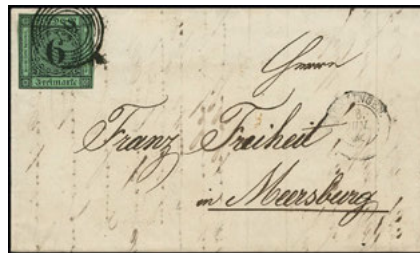 6
Freimarke
Herrn
Franz Freiheit,
in Meersburg,